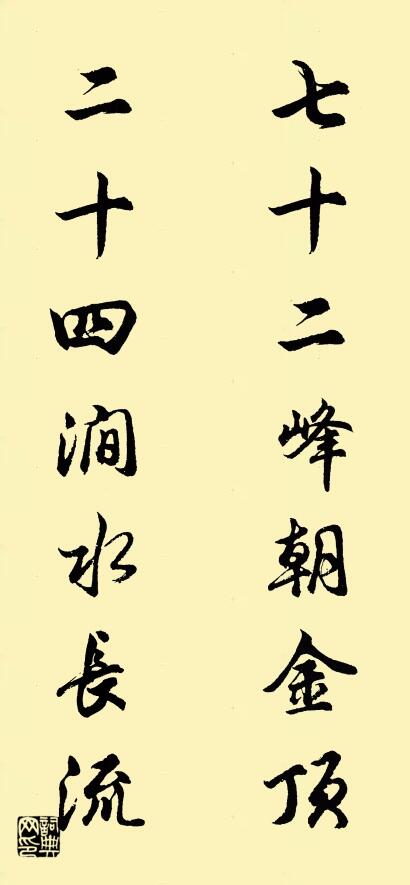 七十二峰朝金顶
二十四涧水長流
詞典网印